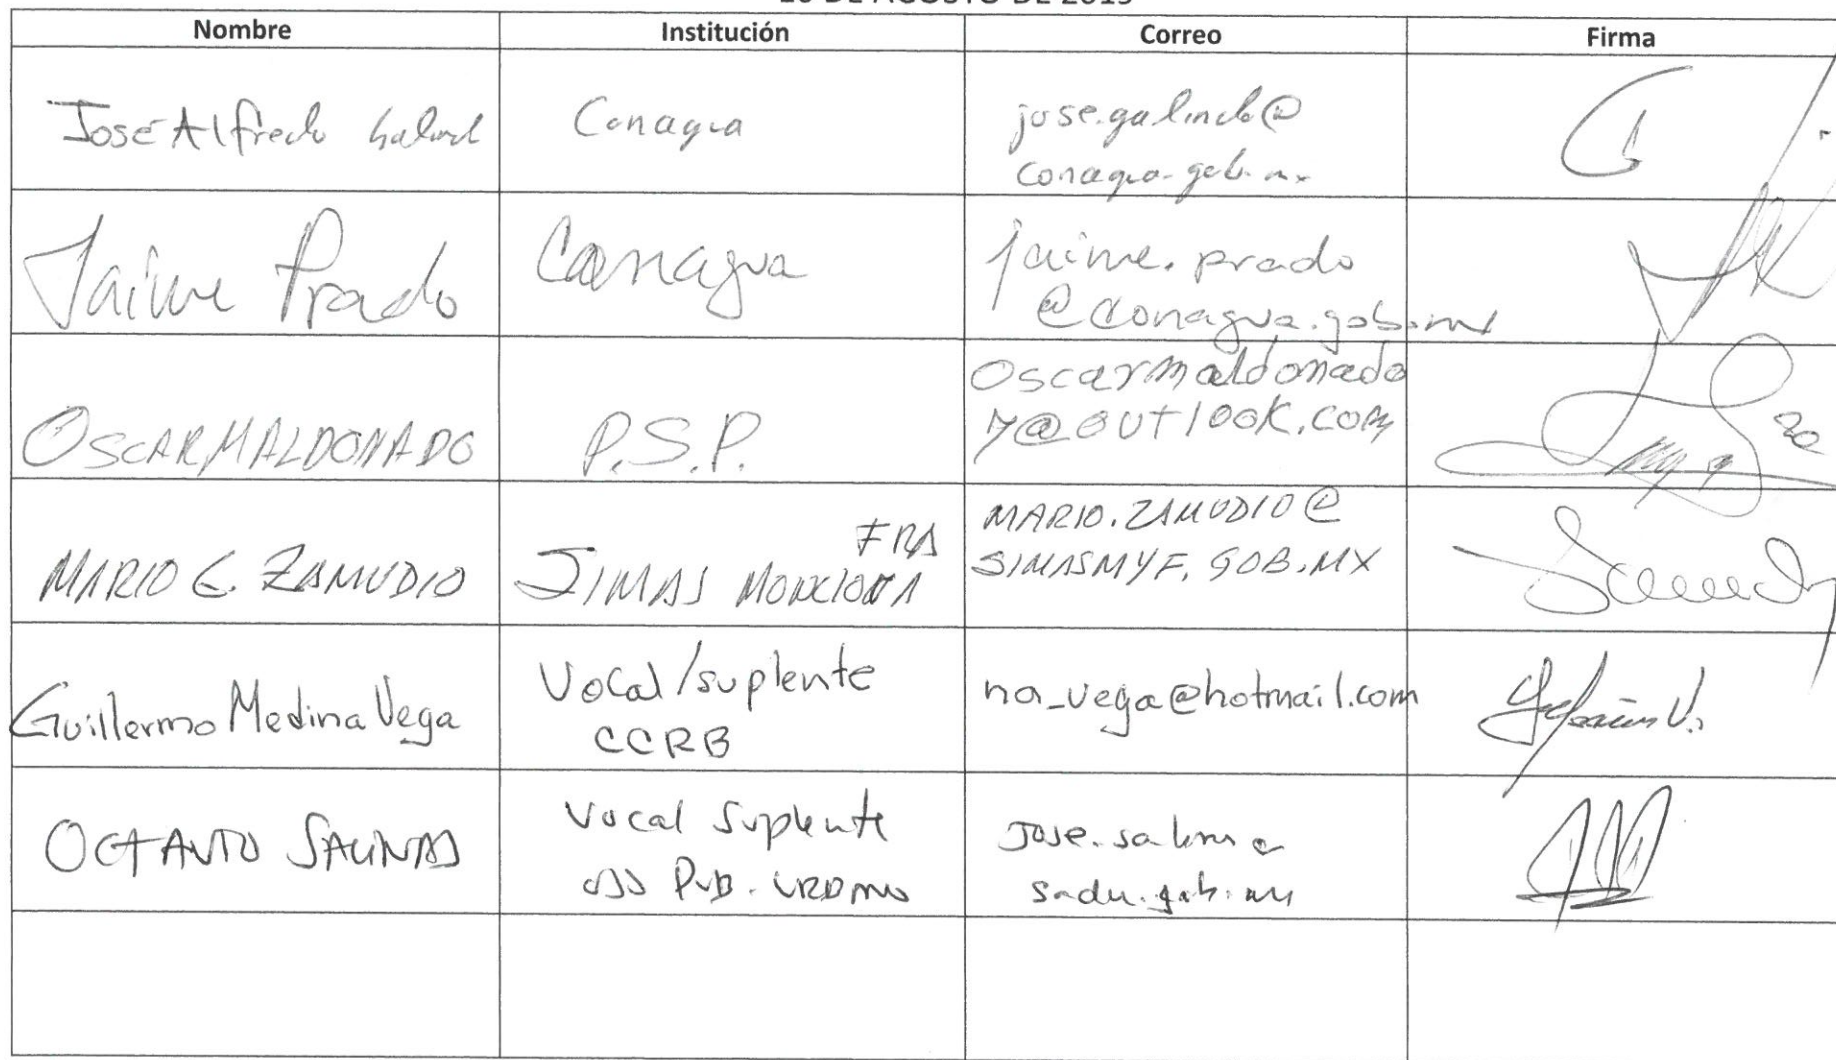 DE AGOSTO DE 2015
Nombre Institución Correo Firma
José Alfredo Conagua jose.galindo@
conagua.gob.mx
Jaime Prado Conagua jaime.prado
@conagua.gob.mx
OSCAR MALDONADO P.S.P. Oscarmaldonado
7@OUTlOOK.COM
MARIO E. ZAMUDIO SIMAS MONCLOVA FRA MARIO.ZAMUDIO@
SIMASMYF.GOB.MX
Guillermo Medina Vega Vocal/suplente na_vega@hotmail.com
CCRB
OCTAVIO SALINAS Vocal Suplente Jose.salinas@
USO PUB. URBANO sadu.gob.mx